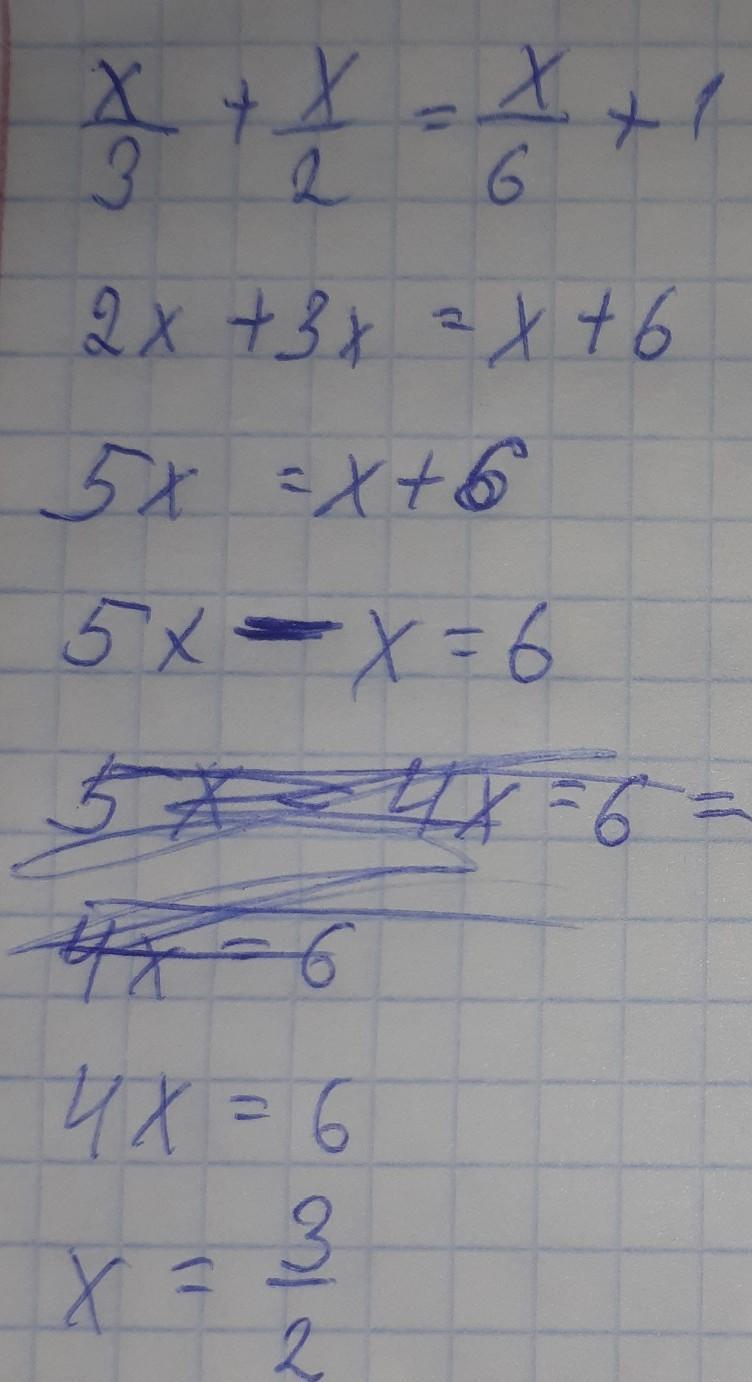 x/3 + x/2 = x/6 + 1
2x + 3x = x + 6
5x = x + 6
5x - x = 6
5x - 4x = 6 =
4x = 6
4x = 6
x = 3/2